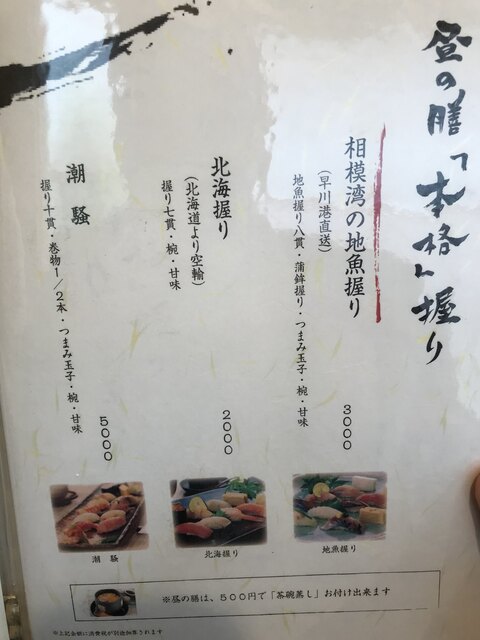 昼の膳「本格」握り
相模湾の地魚握り
(早川港直送)
地魚握り八貫・蒲鉾握り・つまみ玉子・椀・甘味
3000
北海握り
(北海道より空輸)
握り七貫・椀・甘味
2000
潮騒
握り十貫・巻物1/2本・つまみ玉子・椀・甘味
5000
潮騒
北海握り
地魚握り
※昼の膳は、500円で「茶碗蒸し」お付け出来ます
※上記金額に消費税が別途加算されます